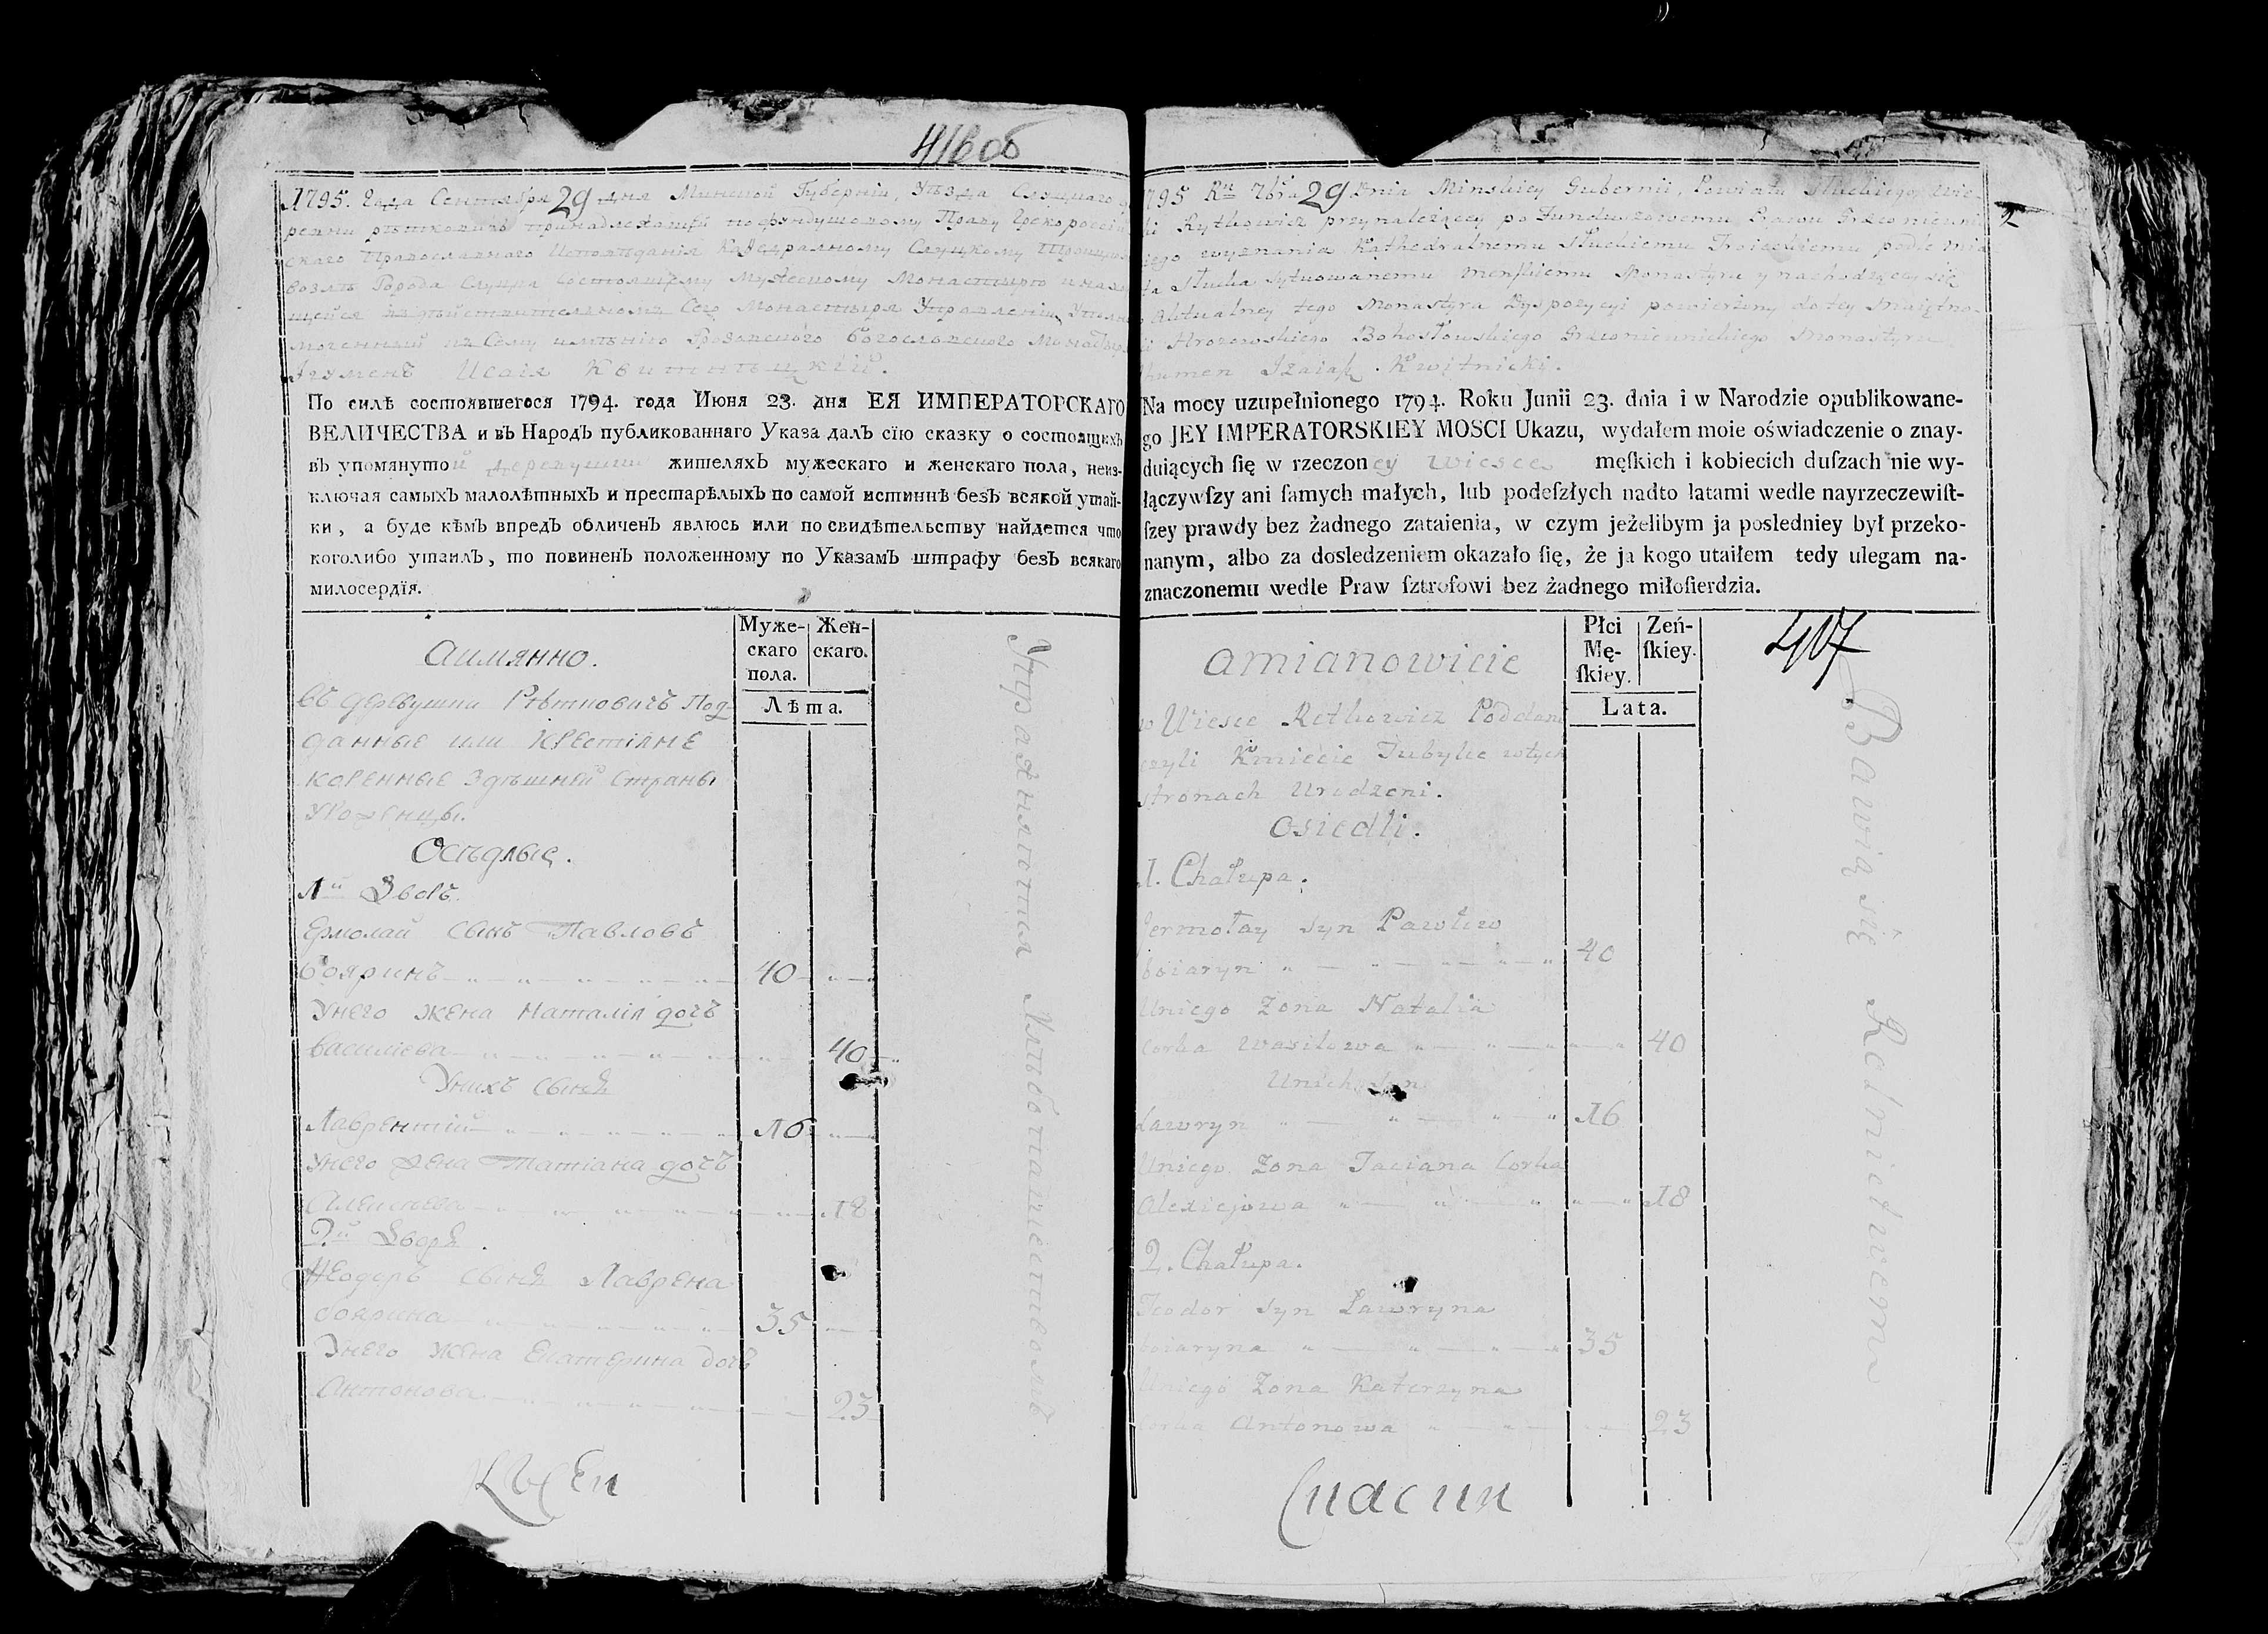 416 об
1795. Года Сентября 29 дня Минской Губерніи, Уѣзда Слуцкаго
принадлежащей по фундушовому Праву Грекороссій
скаго Православнаго Исповѣданія Каѳедралному Слуцкому
возлѣ Города Слуцка состоящему Мужескому Монастырю
щейся въ дѣйствителномъ Сего Монастыря Управленіи
Богословского
Ігуменъ Исаія
По силѣ состоявшегося 1794. года Июня 23. дня ЕЯ ИМПЕРАТОРСКАГО
ВЕЛИЧЕСТВА и въ Народъ публикованнаго Указа далъ сїю сказку о состоящихъ
въ упомянутой деревушки жителяхъ мужескаго и женскаго пола, неиз-
ключая самыхъ малолѣтныхъ и престарѣлыхъ по самой истиннѣ безъ всякой утай-
ки, а буде кѣмъ впредъ обличенъ явлюсь или по свидѣтельству найдется что
коголибо утаилъ, то повиненъ положенному по Указамъ штрафу безъ всякаго
милосердїя.
Муже-
скаго
пола.
Жен-
скаго.
Лѣта.
Аимянно.
въ деревушки Рѣтковичъ Под
данные или Крестіяне
коренные Здѣшней Страны
Уроженцы.
Осѣдлые.
1й Дворъ.
Ермолай сынъ Павловъ
бояринъ 40
Унего жена Наталія дочь
василіева 40
Унихъ сынъ
Лаврентій 16
Унего жена Татіана дочь
Алексіева 18
2й Дворъ.
Ѳеодоръ сынъ Лаврена
боярина 35
Унего жена Екатерина дочь
Антонова 23
Упражняются Хлѣбопашествомъ
2
1795 Rku 7bra 29 Dnia Minskiey Gubernii, Powiatu Słuckiego
przynależącey po Funduszowemu Prawu
wyznania Kathedralnemu Słuckiemu Troieckiemu podle
ta Słucka Sytuowanemu Menskiemu Monastyru y nachodzącey się
Aktualney tego Monastyra Dyspozycyi powierzony do tey Maiętno
Hrozowskiego Bohosłowskiego Monastyru
humen Izaiasz Kwitnicki.
Na mocy uzupełnionego 1794. Roku Junii 23. dnia i w Narodzie opublikowane-
go JEY IMPERATORSKIEY MOSCI Ukazu, wydałem moie oświadczenie o znay-
duiących ſię w rzeczoney wiesce męſkich i kobiecich duſzach nie wy-
łączywſzy ani ſamych małych, lub podeſzłych nadto latami wedle nayrzeczewiſt-
ſzey prawdy bez żadnego zataienia, w czym jeżelibym ja posledniey był przeko-
nanym, albo za dosledzeniem okazało ſię, że ja kogo utaiłem tedy ulegam na-
znaczonemu wedle Praw ſztrofowi bez żadnego miłoſierdzia.
Płci
Mę-
ſkiey.
Zeń-
ſkiey.
Lata.
417
amianowicie
w Wiesce Retkowicz Poddani
czyli Kmiecie Tubylce wtych
stronach Urodzeni.
Osiedli.
1. Chałupa.
Jermołay syn Pawłow
boiaryn 40
Uniego Zona Natalia
Corka Wasilowa 40
Unich syn
Lawryn 16
Uniego Zona Taciana Corka
Alexiejowa 18
2. Chałupa.
Teodor syn Lawryna
boiaryna 35
Uniego Zona Katerzyna
Corka Antonowa 23
Bawią się Rolnictwem